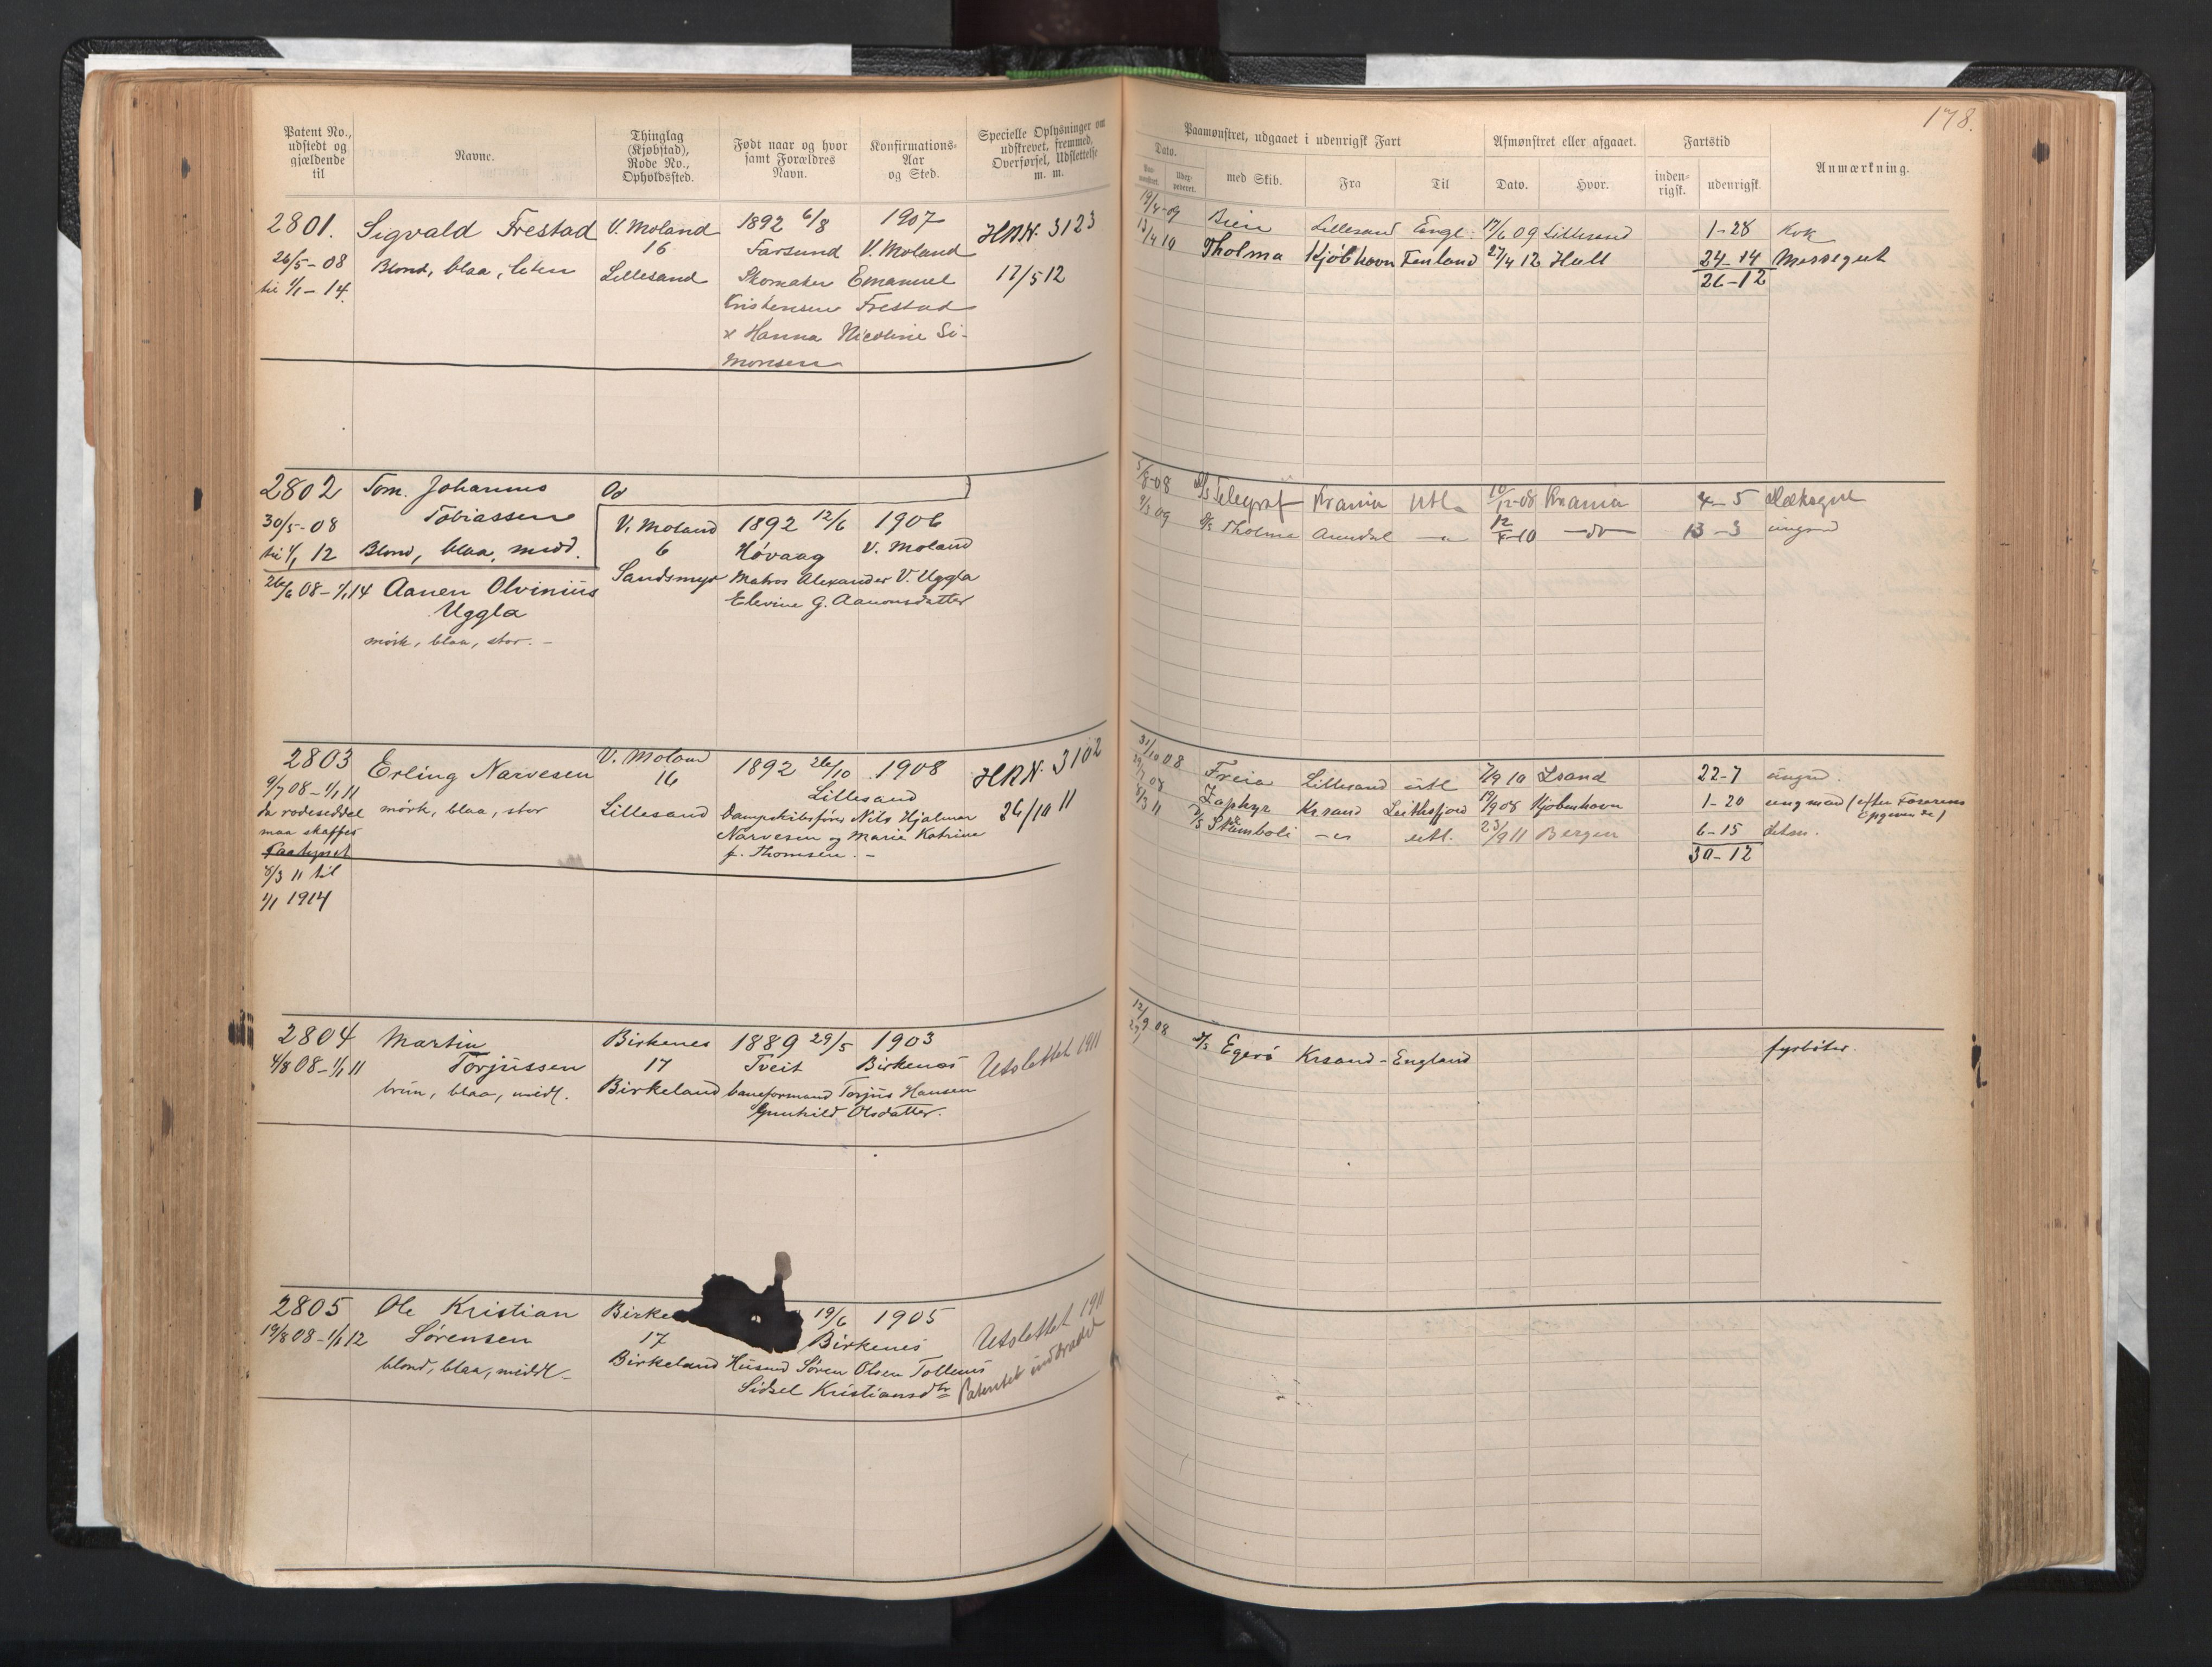 178.
Patent No., udstedt og gjældende til
Navne.
Thinglag (Kjøbstad), Rode No., Opholdssted.
Født naar og hvor samt Forældres Navn.
Konfirmations-Aar og Sted.
Specielle Oplysninger om udskrevet, fremmed, Overførsel, Udslettelse m. m.
Paamønstret, udgaaet i udenrigsk Fart
Afmønstret eller afgaaet.
Fartstid
Anmærkning.
Dato.
med Skib.
Fra
Til
Dato.
Hvor.
inden-rigsk.
udenrigsk.
2801. Sigvald Frestad V. Moland 1892 6/8 1907 HRN. 3123
26/5-08 Blond, blaa, liten 16 Farsund V. Moland
til 1/1-14. Lillesand Skomaker Emanuel 17/5 12
Kristensen Frestad
x Hanna Nicoline Si-
monsen
Lillesand Engl. 17/6 09 Lillesand 1-28 Kok
13/4 10 Tholma Kjøbhavn 27/4 12 Hull 24-14 Messegut
26-12
2802 Tom. Johannes
30/5-08 Tobiassen V. Moland 1892 12/6 1906
til 1/1 12 Blond, blaa, midd. 6 Høvaag V. Moland
26/6 08-1/1 14 Aanen Olvinius Sandsmyr Matros Alexander V. Uggla
Uggla Elevine G. Aanonsdatter
mørk, blaa, stor. -
5/8-08 Telegraf Krania Utl. Krania 4-5 Dæksgut
Tholma Arendal 13-3 ungmd
2803 Erling Narvesen V. Moland 1892 26/10 1908 HRN. 3102
9/7 08-1/1 11 16 Lillesand
da rodeseddel mørk, blaa, stor Lillesand Dampskibsfører Nils Hjalmar 26/10 11
maa skaffes Narvesen og Marie Katrine
Paategnet f. Thomsen. -
8/3 11 til
1/1 1914
31/10 08 Freia Lillesand utl 7/9 10 22-7 ungmd.
Zaphyr Krsand Leithsfjord 19/9 08 Kjøbenhavn 1-20 ung mand (efter Faserens Opgivende)
8/3 11 D/S Stamboli utl. 23/9 11 Bergen 6-15
30-12
2804 Martin Birkenes 1889 29/5 1903
4/8 08-1/1 11 Torjussen 17 Tveit Birkenes Udslettet 1911
brun, blaa, midl. Birkeland baneformand Torjus Hansen
Gunhild Olsdatter.
12/9 08 D/S Egerö Krsand - England fyrbøter.
2805 Ole Kristian Birke 19/6 1905
19/8 08-1/1 12 Sørensen 17 Birkenes Udslettet 1911
blond, blaa, middl - Birkeland Husmd Søren Olsen Tollenes Patentet inddraget
Sidsel Kristiansdtr